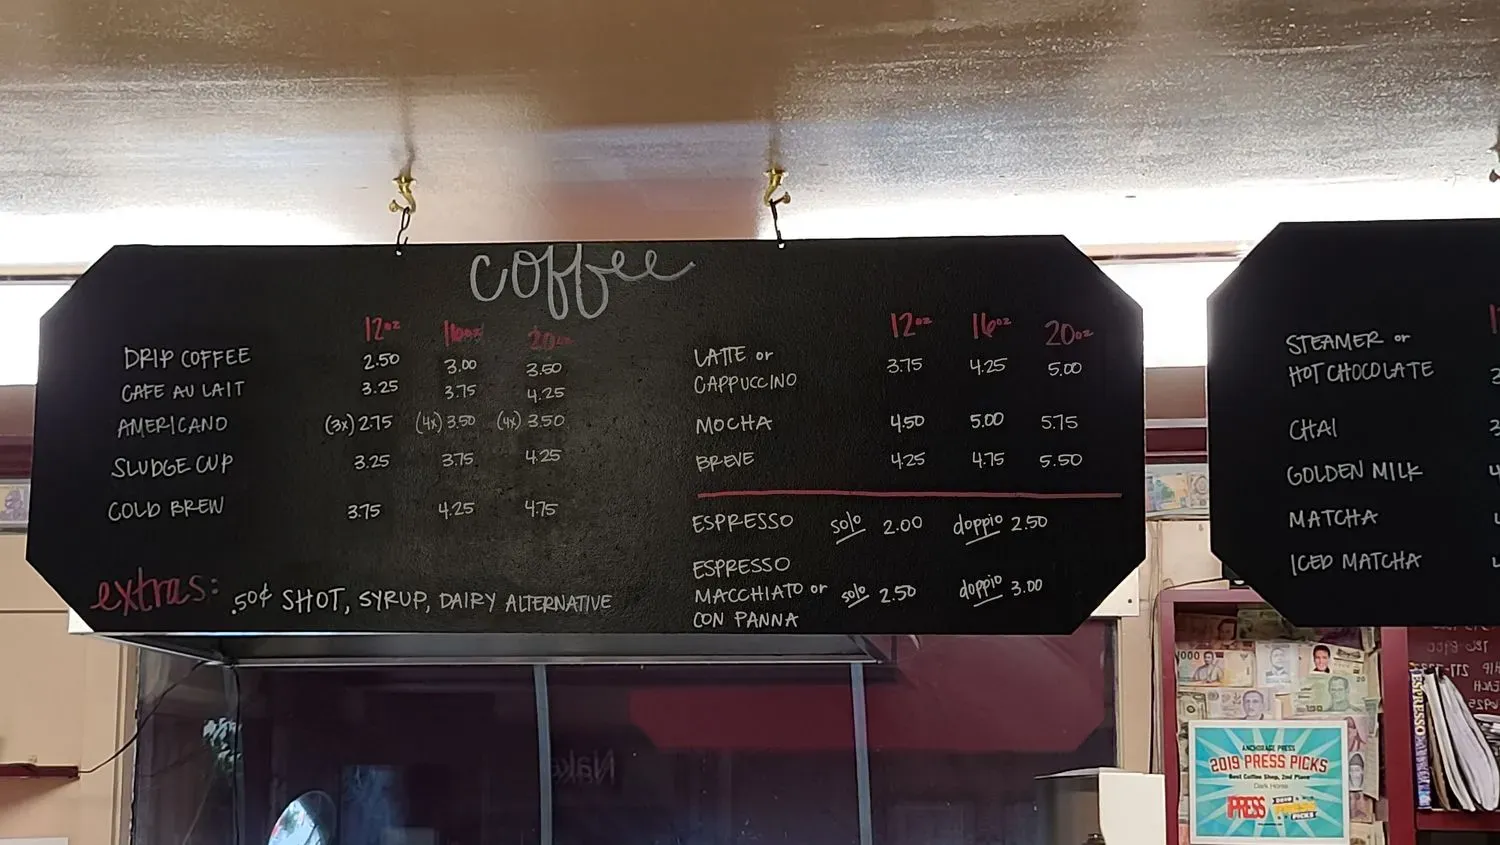 coffee
12oz 16oz 20oz
DRIP COFFEE 2.50 3.00 3.50
CAFE AU LAIT 3.25 3.75 4.25
AMERICANO (3x) 2.75 (4x) 3.50 (4x) 3.50
SLUDGE CUP 3.25 3.75 4.25
COLD BREW 3.75 4.25 4.75
extras: .50¢ SHOT, SYRUP, DAIRY ALTERNATIVE
12oz 16oz 20oz
LATTE or
CAPPUCCINO 3.75 4.25 5.00
MOCHA 4.50 5.00 5.75
BREVE 4.25 4.75 5.50
ESPRESSO solo 2.00 doppio 2.50
ESPRESSO
MACCHIATO or solo 2.50 doppio 3.00
CON PANNA
STEAMER or
HOT CHOCOLATE
CHAI
GOLDEN MILK
MATCHA
ICED MATCHA
ANCHORAGE PRESS
2019 PRESS PICKS
Best Coffee Shop, 2nd Place
Dark Horse
PRESS
PICKS
ESPRESSO